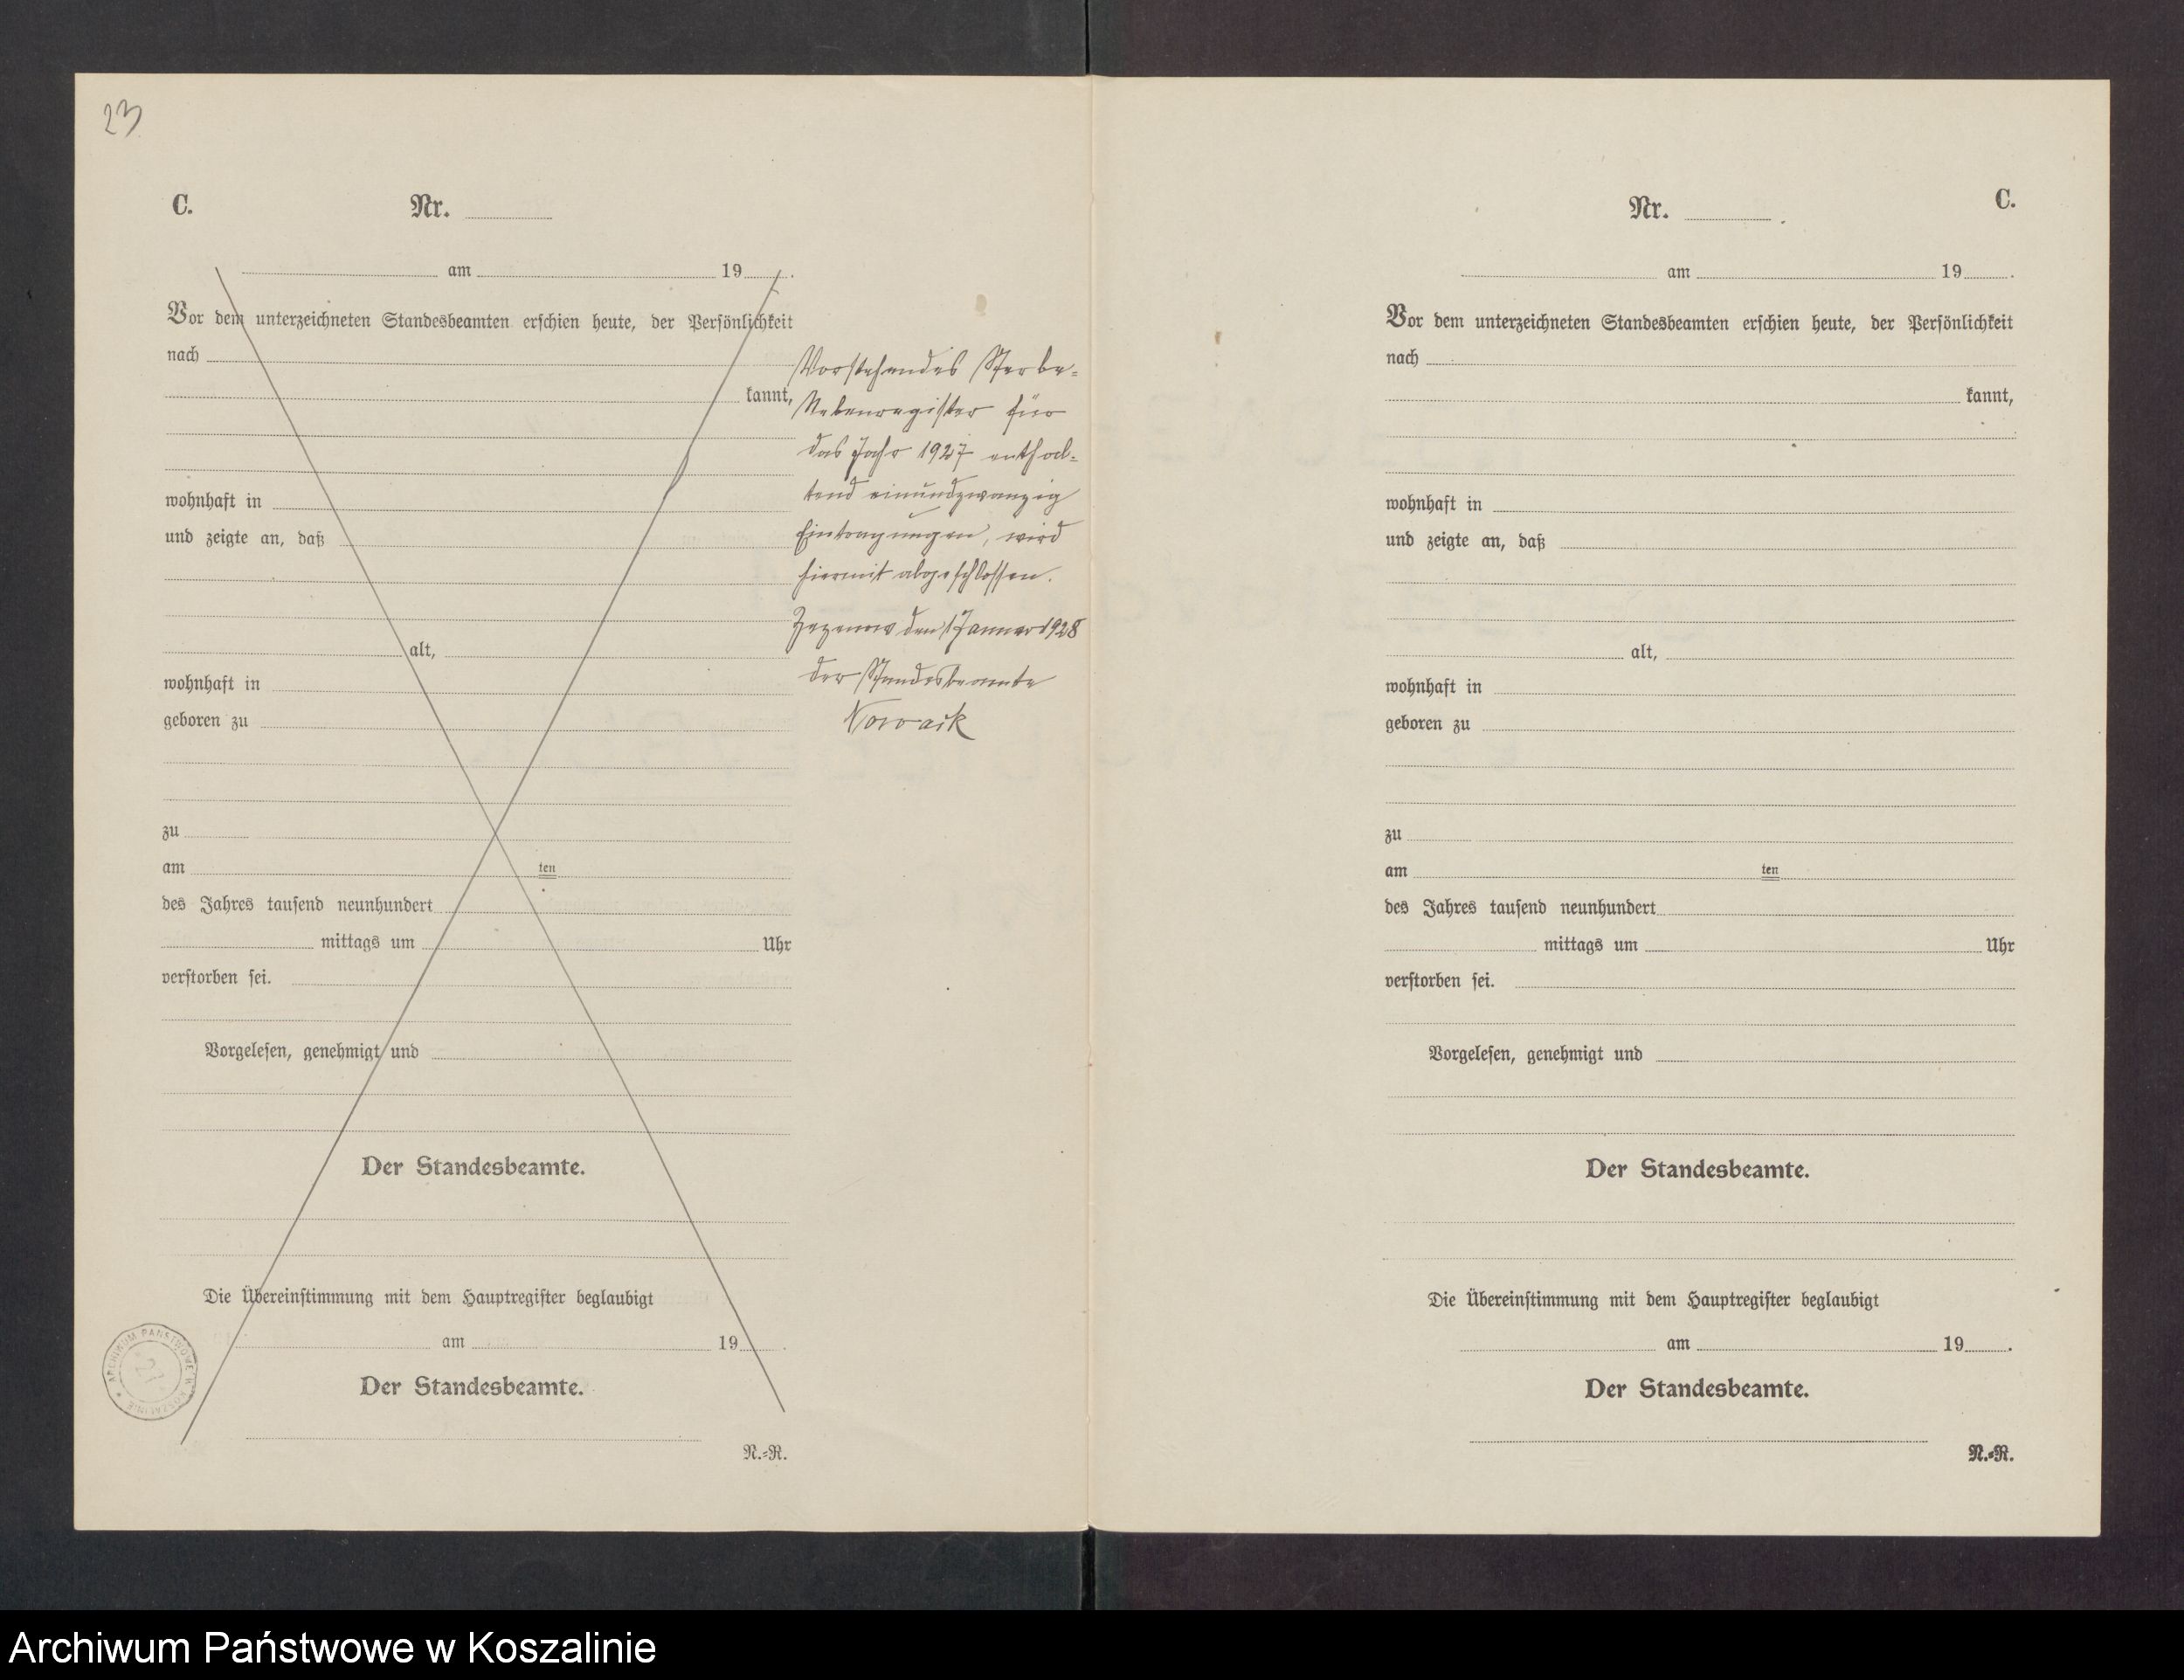 23
C. Nr.
am 19 .
Vor dem unterzeichneten Standesbeamten erschien heute, der Persönlichkeit
nach
kannt,
wohnhaft in
und zeigte an, daß
alt,
wohnhaft in
geboren zu
zu
am ten
des Jahres tausend neunhundert
mittags um Uhr
verstorben sei.
Vorgelesen, genehmigt und
Der Standesbeamte.
Die Übereinstimmung mit dem Hauptregister beglaubigt
am 19 .
Der Standesbeamte.
N.=R.
ARCHIWUM PAŃSTWOWE W KOSZALINIE
Vorstehendes Sterbe=
Nebenregister für
das Jahr 1927 enthal=
tend einundzwanzig
Eintragungen, wird
hiermit abgeschlossen.
Zezenow den 1 Januar 1928
der Standesbeamte
Nowack
Nr. C.
am 19 .
Vor dem unterzeichneten Standesbeamten erschien heute, der Persönlichkeit
nach
kannt,
wohnhaft in
und zeigte an, daß
alt,
wohnhaft in
geboren zu
zu
am ten
des Jahres tausend neunhundert
mittags um Uhr
verstorben sei.
Vorgelesen, genehmigt und
Der Standesbeamte.
Die Übereinstimmung mit dem Hauptregister beglaubigt
am 19 .
Der Standesbeamte.
N.=R.
Archiwum Państwowe w Koszalinie